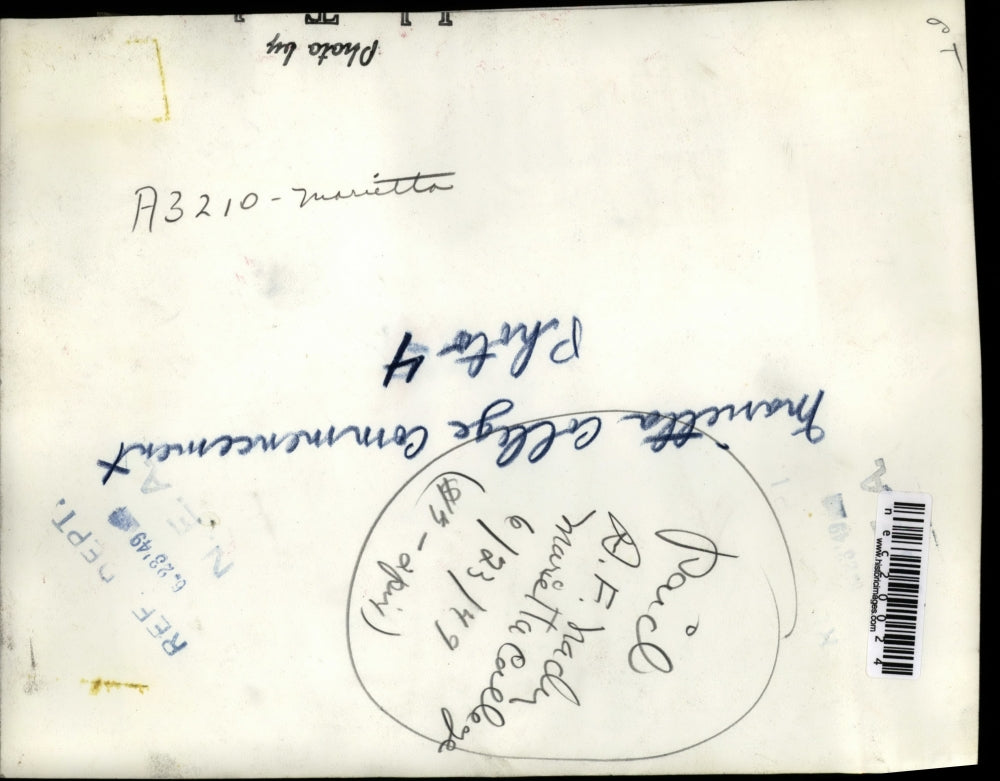 Photo by
A3210-Marietta
Marietta College Commencement
Photo 4
Paid
R.F.
Marietta College
6/23/49
REF. DEPT.
6-28'49
N.E.A.
necz00024
www.historicimages.com